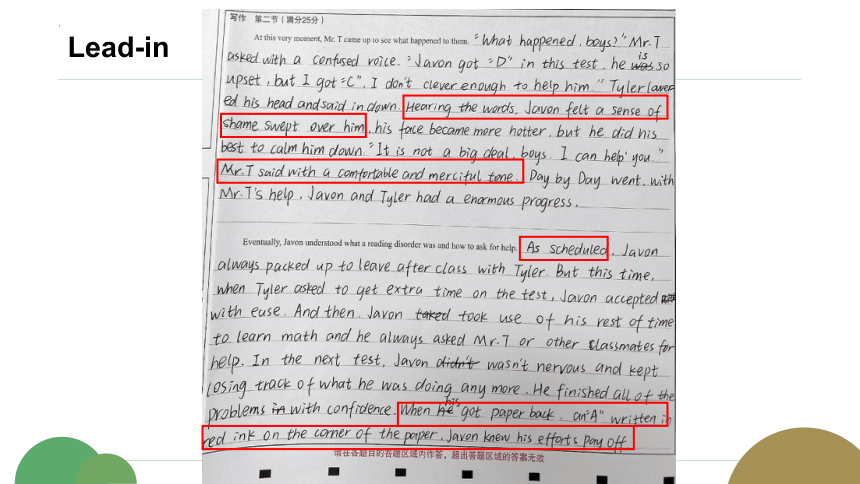 Lead-in
写作 第二节（满分25分）
At this very moment, Mr. T came up to see what happened to them. "What happened, boys?" Mr. T
asked with a confused voice. "Javon got "D" in this test, he was is so
upset, but I got "C". I don't clever enough to help him." Tyler lower
ed his head and said in down. Hearing the words, Javon felt a sense of
shame swept over him, his face became more hotter, but he did his
best to calm him down. "It is not a big deal, boys. I can help you."
Mr. T said with a comfortable and merciful tone. Day by Day went, with
Mr. T's help, Javon and Tyler had a enormous progress.
Eventually, Javon understood what a reading disorder was and how to ask for help. As scheduled, Javon
always packed up to leave after class with Tyler. But this time,
when Tyler asked to get extra time on the test, Javon accepted
with ease. And then, Javon taked took use of his rest of time
to learn math and he always asked Mr. T or other classmates for
help. In the next test, Javon didn't wasn't nervous and kept
losing track of what he was doing any more. He finished all of the
problems in with confidence. When he his got paper back, an "A" written in
red ink on the corner of the paper, Javon knew his efforts pay off
请在各题目的答题区域内作答，超出答题区域的答案无效